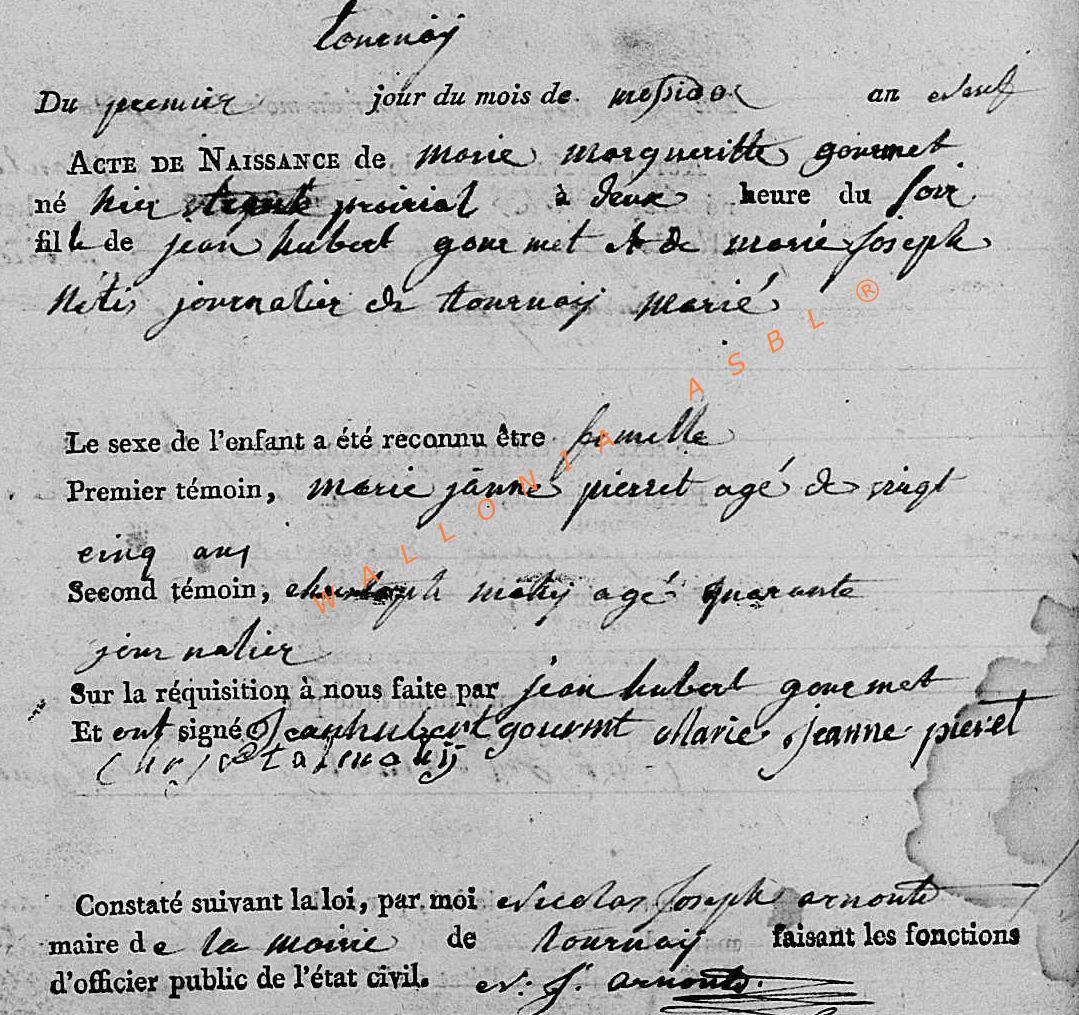 tournay
Du premier jour du mois de messidor an neuf
ACTE DE NAISSANCE de marie margueritte gourmet
né hier trente prairial à deux heure du soir
fille de jean hubert gourmet et de marie joseph
journalier de tournay marié
Le sexe de l'enfant a été reconnu être femelle
Premier témoin, marie jànne pierret agé de vingt
cinq ans
Second témoin, agé quarante
journalier
Sur la réquisition à nous faite par jean hubert gourmet
Et ont signé Jeanhubert gourmt Marie jeanne pieret
Constaté suivant la loi, par moi Nicolas Joseph arnould
maire de la mairie de tournay faisant les fonctions
d'officier public de l'état civil. N: J. arnould.
WALLONIA ASBL ®